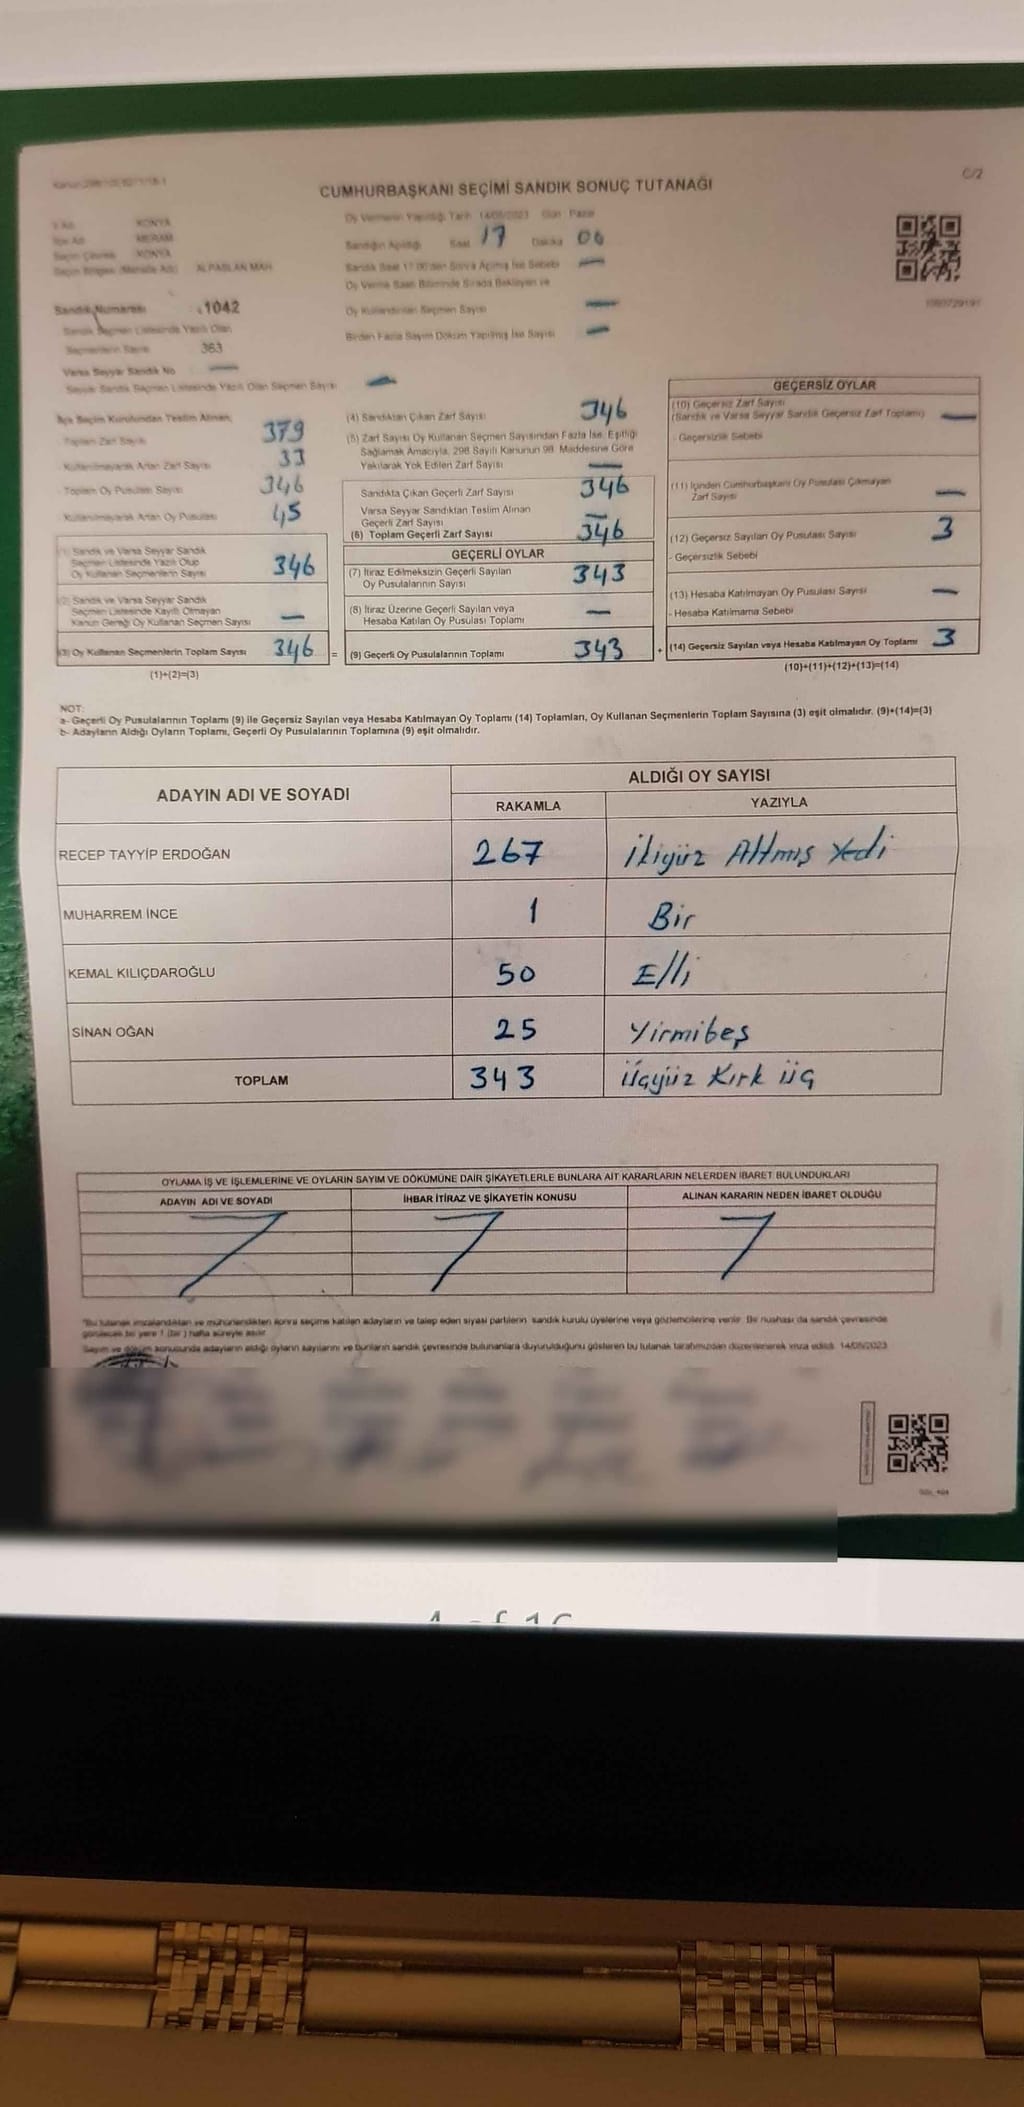 C/2
CUMHURBAŞKANI SEÇİMİ SANDIK SONUÇ TUTANAĞI
KONYA
MERAM
KONYA
Seçim Bölgesi (Mahalle Adı) ALPASLAN MAH
Oy Vermenin Yapıldığı Tarih 14/05/2023 Gün Pazar
Sandığın Açıldığı Saat 17 Dakika 00
Sandık Saat 17:00'den Sonra Açılmış İse Sebebi —
Oy Verme Saati Bitiminde Sırada Bekleyen ve
Oy Kullandırılan Seçmen Sayısı —
Birden Fazla Sayım Döküm Yapılmış İse Sayısı —
Sandık Numarası : 1042
Sandık Seçmen Listesinde Yazılı Olan
Seçmenlerin Sayısı 363
Varsa Seyyar Sandık No —
Seyyar Sandık Seçmen Listesinde Yazılı Olan Seçmen Sayısı —
İlçe Seçim Kurulundan Teslim Alınan;
- Toplam Zarf Sayısı 379
- Kullanılmayarak Artan Zarf Sayısı 33
- Toplam Oy Pusulası Sayısı 346
- Kullanılmayarak Artan Oy Pusulası 45
(1) Sandık ve Varsa Seyyar Sandık
Seçmen Listesinde Yazılı Olup
Oy Kullanan Seçmenlerin Sayısı 346
(2) Sandık ve Varsa Seyyar Sandık
Seçmen Listesinde Kayıtlı Olmayan
Kanun Gereği Oy Kullanan Seçmen Sayısı —
(3) Oy Kullanan Seçmenlerin Toplam Sayısı 346 =
(1)+(2)=(3)
(4) Sandıktan Çıkan Zarf Sayısı 346
(5) Zarf Sayısı Oy Kullanan Seçmen Sayısından Fazla İse, Eşitliği
Sağlamak Amacıyla, 298 Sayılı Kanunun 98. Maddesine Göre
Yakılarak Yok Edilen Zarf Sayısı —
Sandıkta Çıkan Geçerli Zarf Sayısı 346
Varsa Seyyar Sandıktan Teslim Alınan
Geçerli Zarf Sayısı —
(6) Toplam Geçerli Zarf Sayısı 346
GEÇERLİ OYLAR
(7) İtiraz Edilmeksizin Geçerli Sayılan
Oy Pusulalarının Sayısı 343
(8) İtiraz Üzerine Geçerli Sayılan veya
Hesaba Katılan Oy Pusulası Toplamı —
(9) Geçerli Oy Pusulalarının Toplamı 343 +
GEÇERSİZ OYLAR
(10) Geçersiz Zarf Sayısı
(Sandık ve Varsa Seyyar Sandık Geçersiz Zarf Toplamı) —
- Geçersizlik Sebebi
(11) İçinden Cumhurbaşkanı Oy Pusulası Çıkmayan
Zarf Sayısı —
(12) Geçersiz Sayılan Oy Pusulası Sayısı 3
- Geçersizlik Sebebi
(13) Hesaba Katılmayan Oy Pusulası Sayısı —
- Hesaba Katılmama Sebebi
(14) Geçersiz Sayılan veya Hesaba Katılmayan Oy Toplamı 3
(10)+(11)+(12)+(13)=(14)
NOT:
a- Geçerli Oy Pusulalarının Toplamı (9) ile Geçersiz Sayılan veya Hesaba Katılmayan Oy Toplamı (14) Toplamları, Oy Kullanan Seçmenlerin Toplam Sayısına (3) eşit olmalıdır. (9)+(14)=(3)
b- Adayların Aldığı Oyların Toplamı, Geçerli Oy Pusulalarının Toplamına (9) eşit olmalıdır.
ADAYIN ADI VE SOYADI
ALDIĞI OY SAYISI
RAKAMLA YAZIYLA
RECEP TAYYİP ERDOĞAN 267 İkiyüz Altmış Yedi
MUHARREM İNCE 1 Bir
KEMAL KILIÇDAROĞLU 50 Elli
SİNAN OĞAN 25 Yirmibeş
TOPLAM 343 Üçyüz Kırk üç
OYLAMA İŞ VE İŞLEMLERİNE VE OYLARIN SAYIM VE DÖKÜMÜNE DAİR ŞİKAYETLERLE BUNLARA AİT KARARLARIN NELERDEN İBARET BULUNDUKLARI
ADAYIN ADI VE SOYADI İHBAR İTİRAZ VE ŞİKAYETİN KONUSU ALINAN KARARIN NEDEN İBARET OLDUĞU
"Bu tutanak imzalandıktan ve mühürlendikten sonra seçime katılan adayların ve talep eden siyasi partilerin sandık kurulu üyelerine veya gözlemcilerine verilir. Bir nüshası da sandık çevresinde
görülecek bir yere 1 (bir) hafta süreyle asılır
Sayım ve döküm sonucunda adayların aldığı oyların sayılarını ve bunların sandık çevresinde bulunanlara duyurulduğunu gösteren bu tutanak tarafımızdan düzenlenerek imza edildi. 14/05/2023